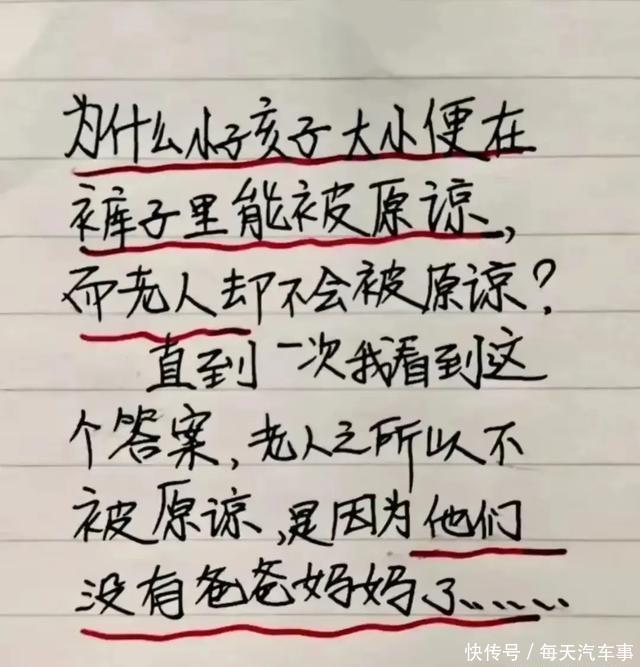 为什么小孩子大小便在
裤子里能被原谅,
而老人却不会被原谅?
直到一次我看到这
个答案,老人之所以不
被原谅,是因为他们
没有爸爸妈妈了......
快传号/每天汽车事